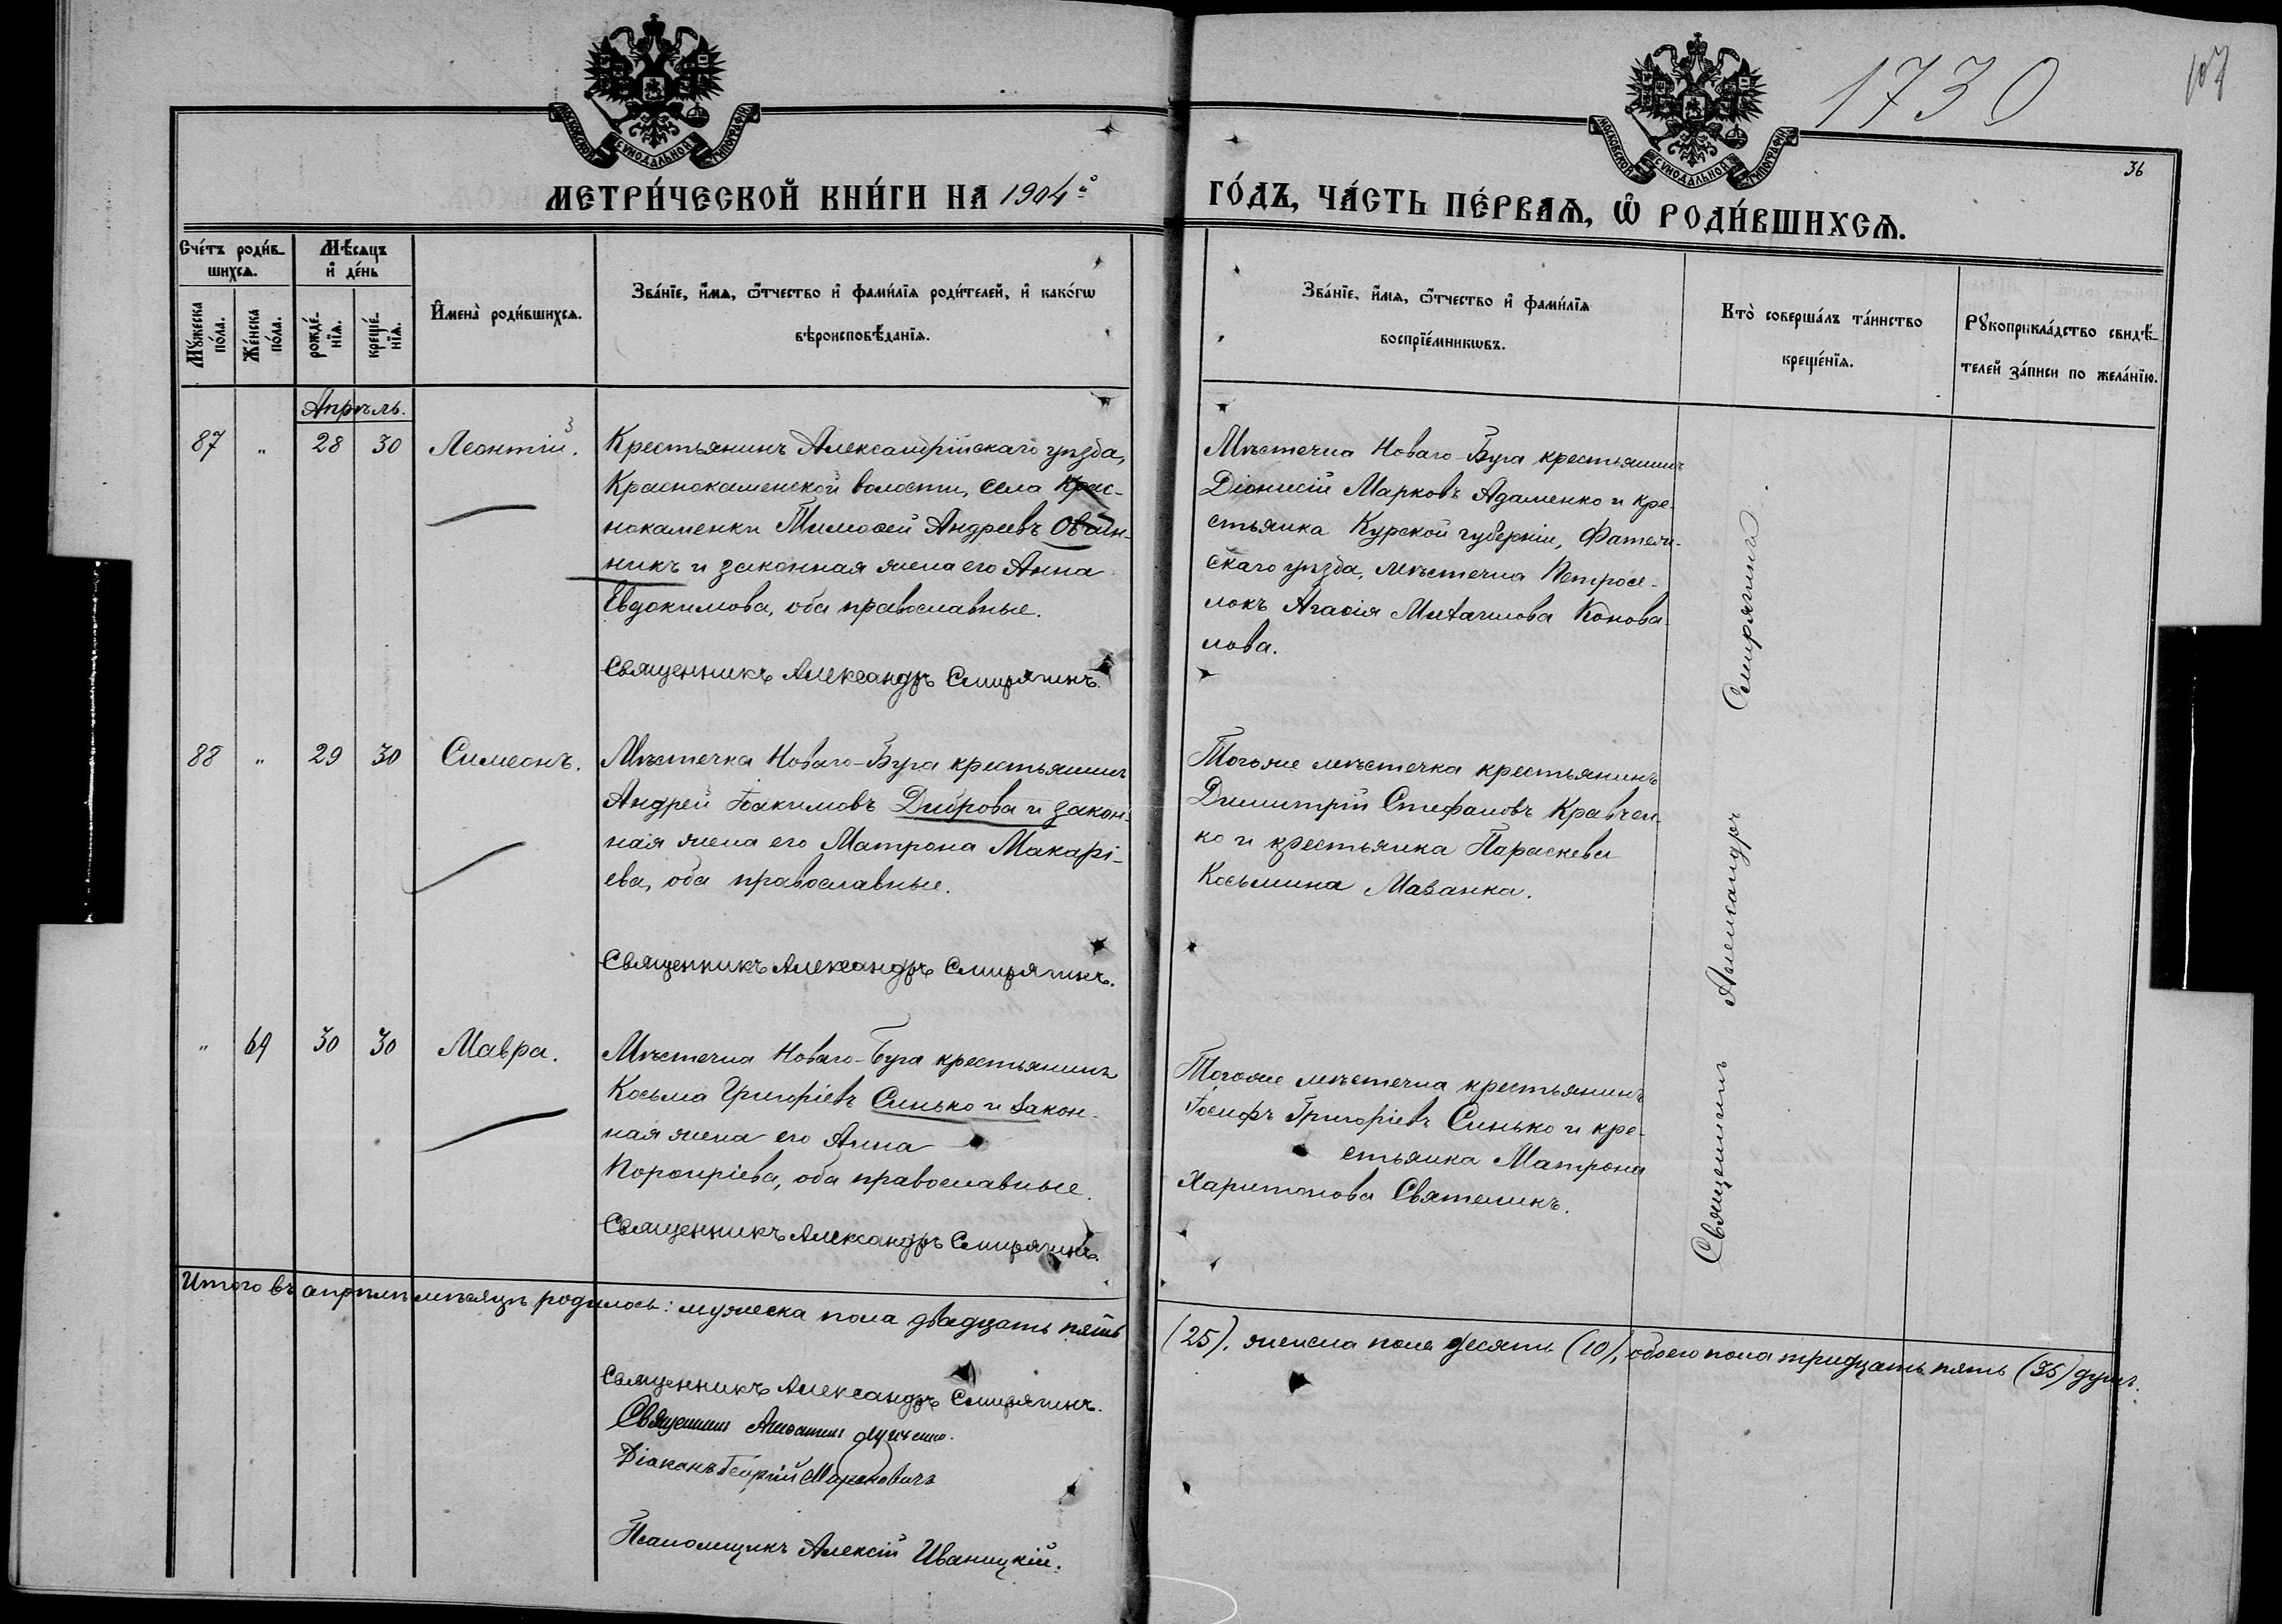 1730
107
36
МОСКОВСКОЙ СѴНОДАЛЬНОЙ ТИПОГРАФІИ
МОСКОВСКОЙ СѴНОДАЛЬНОЙ ТИПОГРАФІИ
МЕТРИ́ЧЕСКОЙ КНИ́ГИ НА 1904й
ГО́ДЪ, ЧА́СТЬ ПЕ́РВАѦ, Ѽ РОДИ́ВШИХСѦ.
Сче́тъ роди́в-
шихсѧ.
Мѣсѧцъ
и҆ де́нь
Мꙋ́жеска
по́ла.
Же́нска
по́ла.
рожде́-
нїѧ.
креще́-
нїѧ.
И҆мена̀ роди́вшихсѧ.
Зва́нїе, и҆́мѧ, ѻ҆́тчество и҆ фами́лїѧ роди́телей, и҆ како́гѡ
вѣроисповѣ́данїѧ.
Зва́нїе, и҆́мѧ, ѻ҆́тчество и҆ фами́лїѧ
воспрїе́мникѡвъ.
Кто̀ соверша́лъ та́инство
креще́нїѧ.
Рꙋкоприкла́дство свидѣ́-
телей за́писи по жела́нїю.
Апрѣль.
87 " 28 30 Леонтій. 3
Крестьянинъ Александрійскаго уѣзда,
Краснокаменской волости, села Крас-
нокаменки Тимоѳей Андреевъ Овчин-
никъ и законная жена его Анна
Евдокимова, оба православные.
Священникъ Александръ Смирягинъ.
Мѣстечка Новаго-Буга крестьянинъ
Діонисій Марковъ Адаменко и кре-
стьянка Курской губерніи, Фатеж-
скаго уѣзда, мѣстечка
Агаѳія Конова-
лова.
88 " 29 30 Симеонъ.
Мѣстечка Новаго-Буга крестьянинъ
Андрей Іоакимовъ Диброва и закон-
ная жена его Матрона Макарі-
ева, оба православные.
Священникъ Александръ Смирягинъ.
Тогоже мѣстечка крестьянинъ
Димитрій Стефановъ Кравчен-
ко и крестьянка Параскева
Косьмина Мазанка.
" 69 30 30 Мавра.
Мѣстечка Новаго-Буга крестьянинъ
Косьма Григоріевъ Синько и закон-
ная жена его Анна
Порфиріева, оба православные.
Священникъ Александръ Смирягинъ.
Тогоже мѣстечка крестьянинъ
Іосифъ Григоріевъ Синько и кре-
стьянка Матрона
Харитонова
Священникъ Александръ Смирягинъ
Итого въ апрѣлѣ мѣсяцѣ родилось: мужеска пола двадцать пять
(25), женска пола десять (10), обоего пола тридцать пять (35) душъ.
Священникъ Александръ Смирягинъ.
Священникъ
Діаконъ Георгій
Псаломщикъ Алексій Иваницкій.